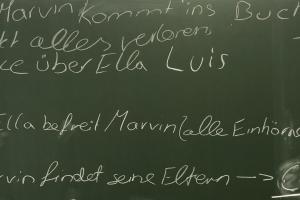 Marvin kommt ins Buch
alles verloren
über Ella Luis
Ella befreit Marvin (alle Einhörne
rvin findet seine Eltern —>